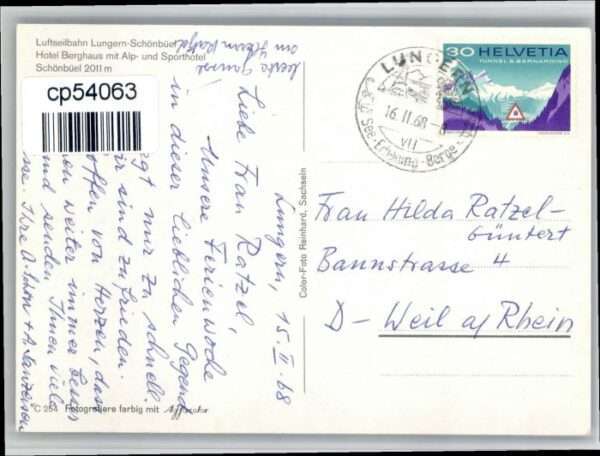 Luftseilbahn Lungern-Schönbüel
Hotel Berghaus mit Alp- und Sporthotel
Schönbüel 2011 m
cp54063
Lungern, 15. II. 68
Liebe Frau Ratzel,
Unsere Ferienwoche
in dieser lieblichen Gegend
nur zu schnell.
ir sind zufrieden
offen von Herzen, dass
weiter immer besser
und senden Ihnen viele
Ihre
an Herrn Ratzel
Color-Foto Reinhard, Sachseln
C 254 Fotografiere farbig mit
LUNGERN
16.II.68
VII
See-Erholung-Berge
30 HELVETIA
TUNNEL S. BERNARDINO
Frau Hilda Ratzel-
Güntert
Bannstrasse 4
D- Weil a/ Rhein